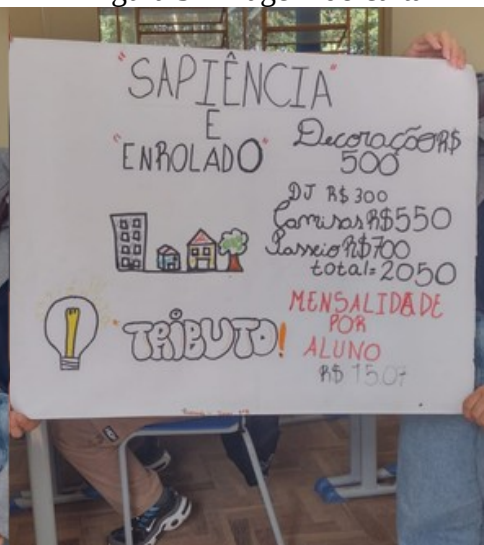 "SAPIÊNCIA"
E
"ENROLADO"
Decoração R$
500
DJ R$ 300
Camisas R$550
Passeio R$700
total= 2050
"TRIBUTO!
MENSALIDADE
POR
ALUNO
R$ 15.07